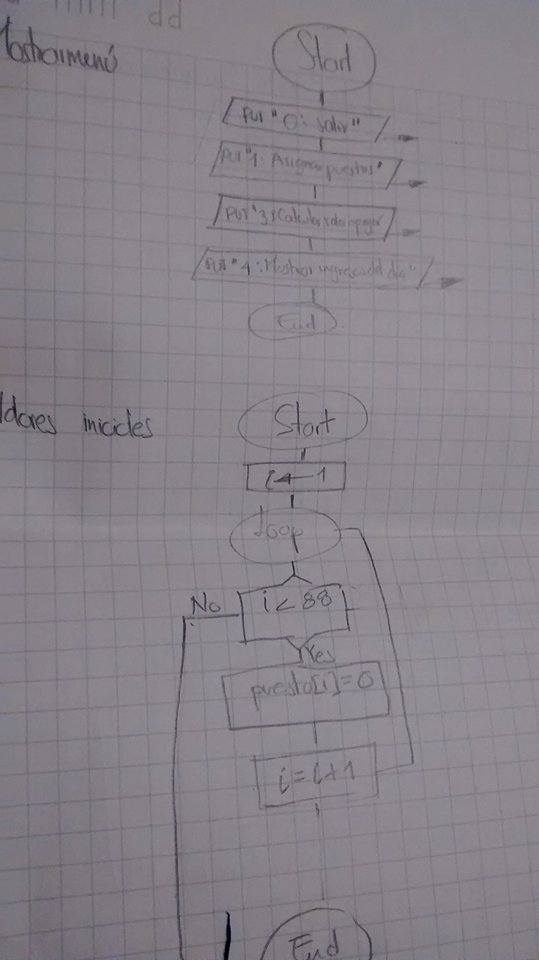 dd
Mostrarmenú
Start
PUT "0: Salir"
PUT "1: Asignar puestos"
PUT "3: Calcular
PUT "4: Mostrar ingresos del día"
End
iniciales
Start
i ← 1
loop
No
i < 88
Yes
puesto[i]=0
i=i+1
End